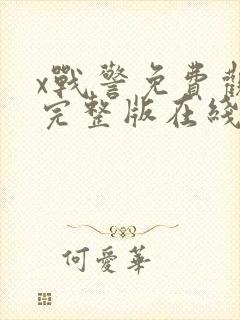 x戰警免費觀
完整版在綫
何愛華